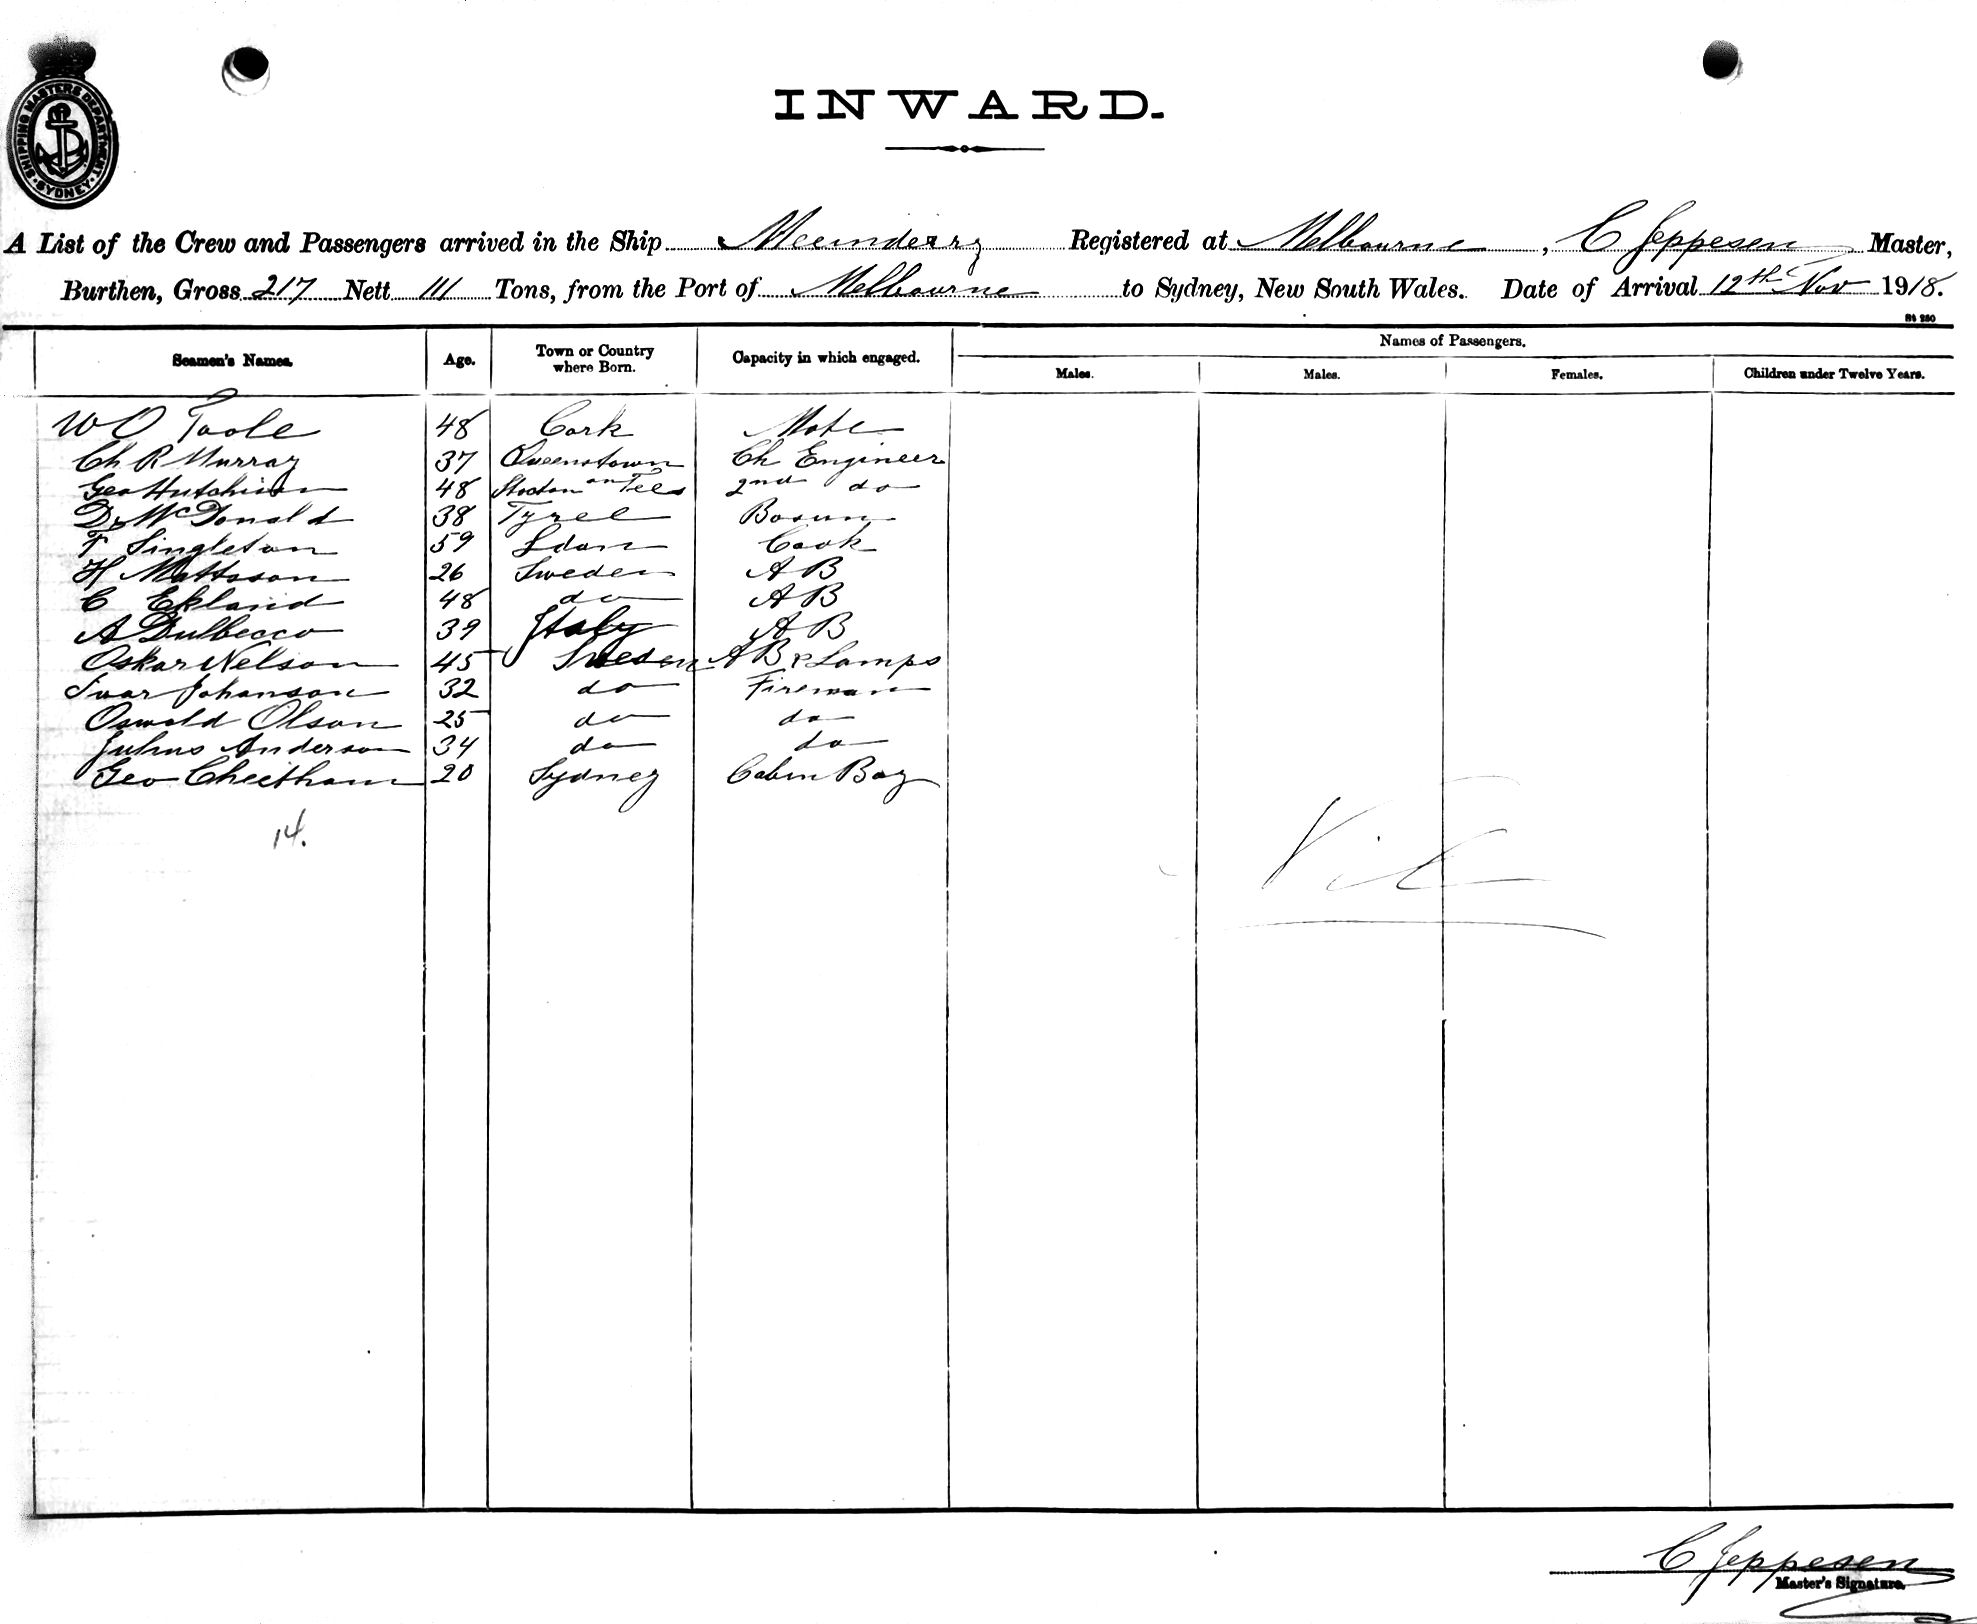 SHIPPING MASTERS DEPARTMENT
SYDNEY
INWARD.
A List of the Crew and Passengers arrived in the Ship Meeinderry Registered at Melbourne, C Jeppesen Master,
Burthen, Gross 217 Nett 111 Tons, from the Port of Melbourne to Sydney, New South Wales. Date of Arrival 12th Nov 1918.
Seamen's Names. Age. Town or Country where Born. Capacity in which engaged. Names of Passengers.
Males. Males. Females. Children under Twelve Years.
W O Toole 48 Cork Mate
Ch R Murray 37 Queenstown Ch Engineer
Geo Hutchison 48 Stocton on Tees 2nd do
D McDonald 38 Tyree Bosun
F Singleton 59 Ldon Cook
H Mattsson 26 Sweden A B
C Ekland 48 do A B
A Dulbecco 39 Italy A B
Oskar Nelson 45 Sweden A B & Lamps
Ivar Johanson 32 do Fireman
Oswald Olson 25 do do
Julius Anderson 34 do do
Geo Cheetham 20 Sydney Cabin Boy
14.
C Jeppesen
Master's Signature.